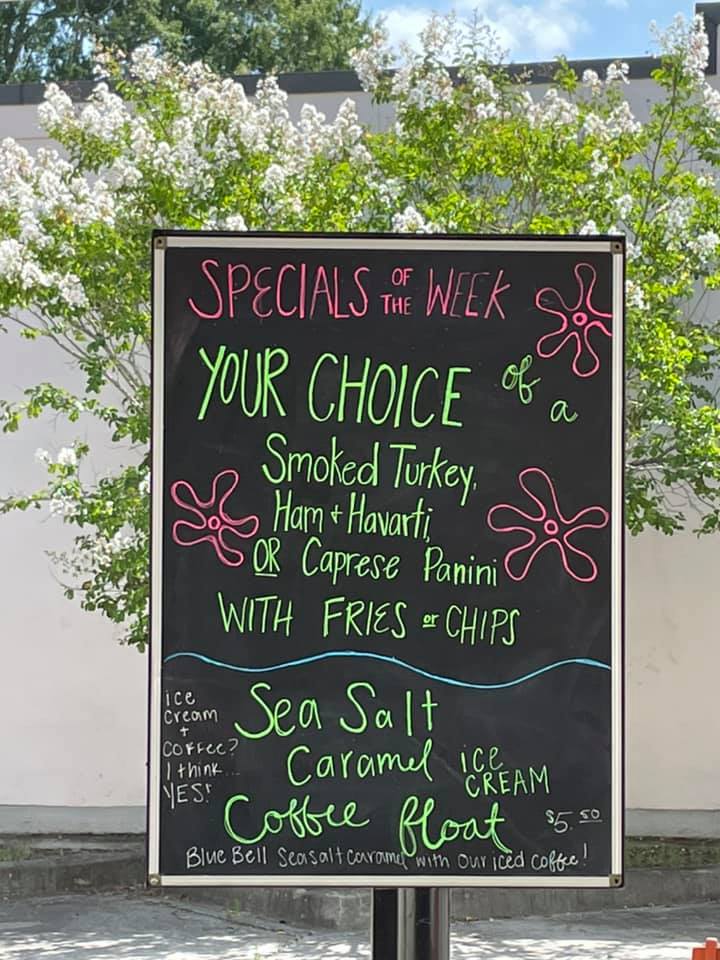 SPECIALS OF THE WEEK
YOUR CHOICE of a
Smoked Turkey,
Ham + Havarti,
OR Caprese Panini
WITH FRIES or CHIPS
ice
cream
+
COFFee?
I think...
YES!
Sea Salt
Caramel ICE CREAM
Coffee float $5.50
Blue Bell Seasalt caramel with our iced coffee!